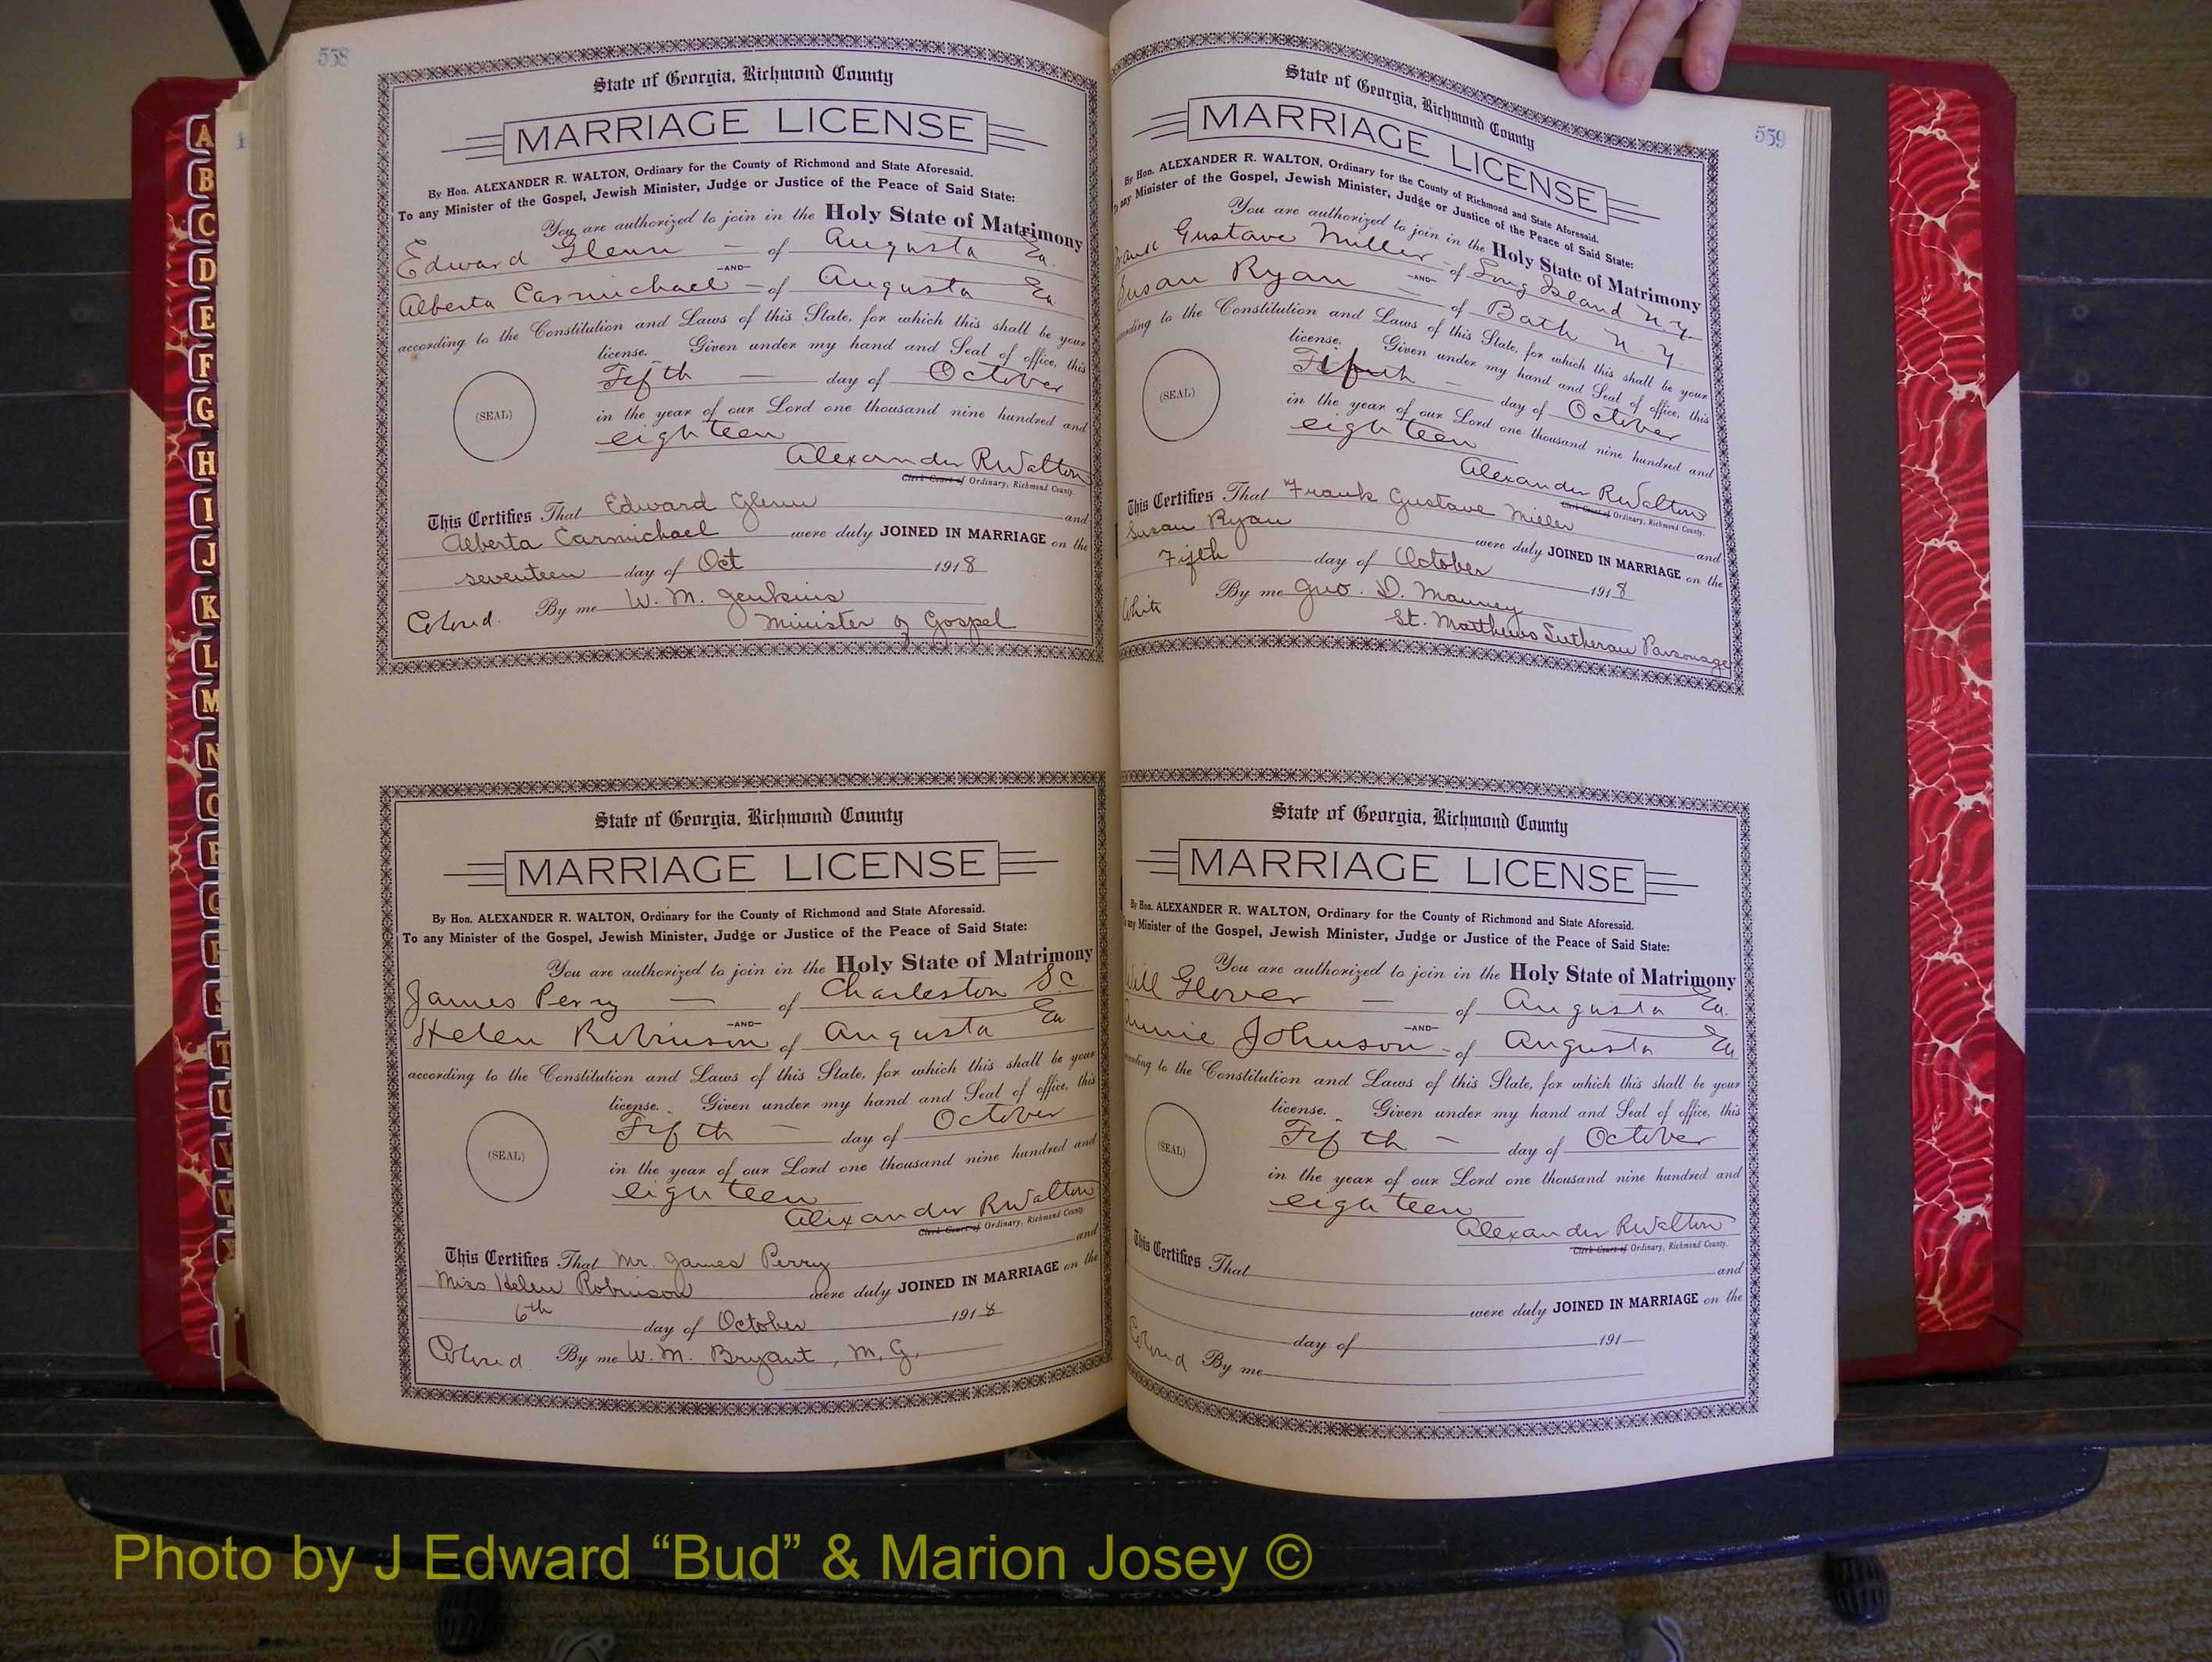 558
State of Georgia, Richmond County
MARRIAGE LICENSE
By Hon. ALEXANDER R. WALTON, Ordinary for the County of Richmond and State Aforesaid.
To any Minister of the Gospel, Jewish Minister, Judge or Justice of the Peace of Said State:
You are authorized to join in the Holy State of Matrimony
Edward Glenn — of Augusta Ga.
—AND—
Alberta Carmichael — of Augusta Ga
according to the Constitution and Laws of this State, for which this shall be your
license. Given under my hand and Seal of office, this
Fifth — day of October
(SEAL)
in the year of our Lord one thousand nine hundred and
eighteen
Alexander R Walton
Clerk Court of Ordinary, Richmond County.
This Certifies That Edward Glenn and
Alberta Carmichael were duly JOINED IN MARRIAGE on the
seventeen day of Oct 1918
Colored. By me W. M. Jenkins
Minister of Gospel
State of Georgia, Richmond County
MARRIAGE LICENSE
By Hon. ALEXANDER R. WALTON, Ordinary for the County of Richmond and State Aforesaid.
To any Minister of the Gospel, Jewish Minister, Judge or Justice of the Peace of Said State:
You are authorized to join in the Holy State of Matrimony
James Perry — of Charleston S.C
—AND—
Helen Robinson of Augusta Ga
according to the Constitution and Laws of this State, for which this shall be your
license. Given under my hand and Seal of office, this
Fifth — day of October
(SEAL)
in the year of our Lord one thousand nine hundred and
eighteen
Alexander R Walton
Clerk Court of Ordinary, Richmond County.
This Certifies That Mr. James Perry and
Miss Helen Robinson were duly JOINED IN MARRIAGE on the
6th day of October 1918
Colored. By me W. M. Bryant, M. G.
559
State of Georgia, Richmond County
MARRIAGE LICENSE
By Hon. ALEXANDER R. WALTON, Ordinary for the County of Richmond and State Aforesaid.
any Minister of the Gospel, Jewish Minister, Judge or Justice of the Peace of Said State:
You are authorized to join in the Holy State of Matrimony
Gustave Miller - of Long Island N.Y.
—AND—
Susan Ryan — of Bath N.Y.
to the Constitution and Laws of this State, for which this shall be your
license. Given under my hand and Seal of office, this
Fifth — day of October
(SEAL)
in the year of our Lord one thousand nine hundred and
eighteen
Alexander R Walton
Clerk Court of Ordinary, Richmond County.
This Certifies That Frank Gustave Miller and
Susan Ryan were duly JOINED IN MARRIAGE on the
Fifth day of October 1918
White By me Geo. D. Mauney
St. Matthews Lutheran Parsonage
State of Georgia, Richmond County
MARRIAGE LICENSE
By Hon. ALEXANDER R. WALTON, Ordinary for the County of Richmond and State Aforesaid.
any Minister of the Gospel, Jewish Minister, Judge or Justice of the Peace of Said State:
You are authorized to join in the Holy State of Matrimony
Will Glover — of Augusta Ga.
—AND—
Johnson - of Augusta Ga
to the Constitution and Laws of this State, for which this shall be your
license. Given under my hand and Seal of office, this
Fifth — day of October
(SEAL)
in the year of our Lord one thousand nine hundred and
eighteen
Alexander R Walton
Clerk Court of Ordinary, Richmond County.
This Certifies That and
were duly JOINED IN MARRIAGE on the
day of 191
Colored By me
A
B
C
D
E
F
G
H
I
J
K
L
M
N
O
P
Q
R
S
T
U
V
W
Photo by J Edward “Bud” & Marion Josey ©